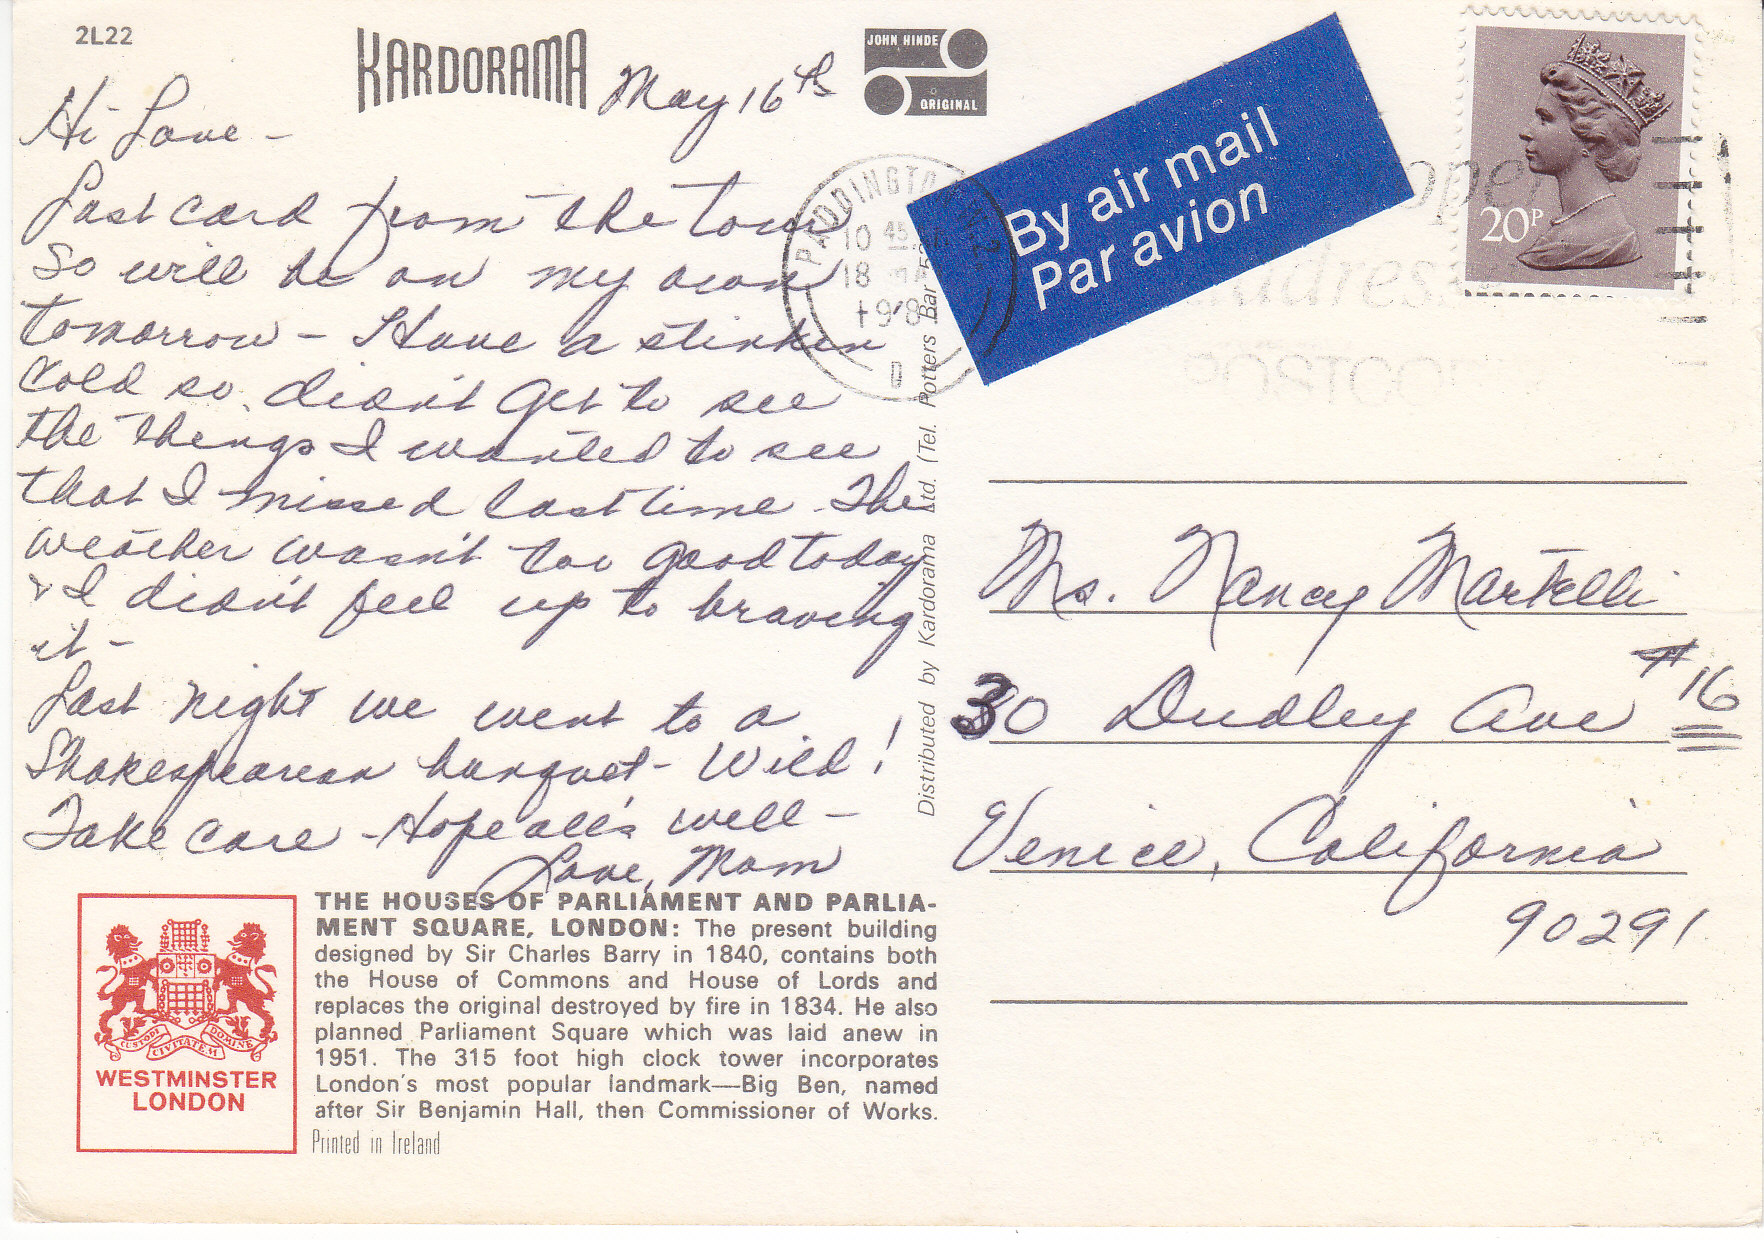 2L22
KARDORAMA
JOHN HINDE
ORIGINAL
May 16th
Hi Love -
Last card from the tour
so will be on my own
tomorrow - Have a stinkin
cold so didn't get to see
the things I wanted to see
that I missed last time. The
weather wasn't too good today
& I didn't feel up to braving
it -
Last night we went to a
Shakespearean banquet - Wild!
Take care - Hope all's well -
Love, Mom
WESTMINSTER
LONDON
CUSTODI CIVITATEM DOMINE
THE HOUSES OF PARLIAMENT AND PARLIA-
MENT SQUARE, LONDON: The present building
designed by Sir Charles Barry in 1840, contains both
the House of Commons and House of Lords and
replaces the original destroyed by fire in 1834. He also
planned Parliament Square which was laid anew in
1951. The 315 foot high clock tower incorporates
London's most popular landmark—Big Ben, named
after Sir Benjamin Hall, then Commissioner of Works.
Printed in Ireland
Distributed by Kardorama Ltd. (Tel. Potters Bar
PADDINGTO
10 45
18
198
D
By air mail
Par avion
20P
Ms. Nancy Martelli
30 Dudley Ave #16
Venice, California
90291